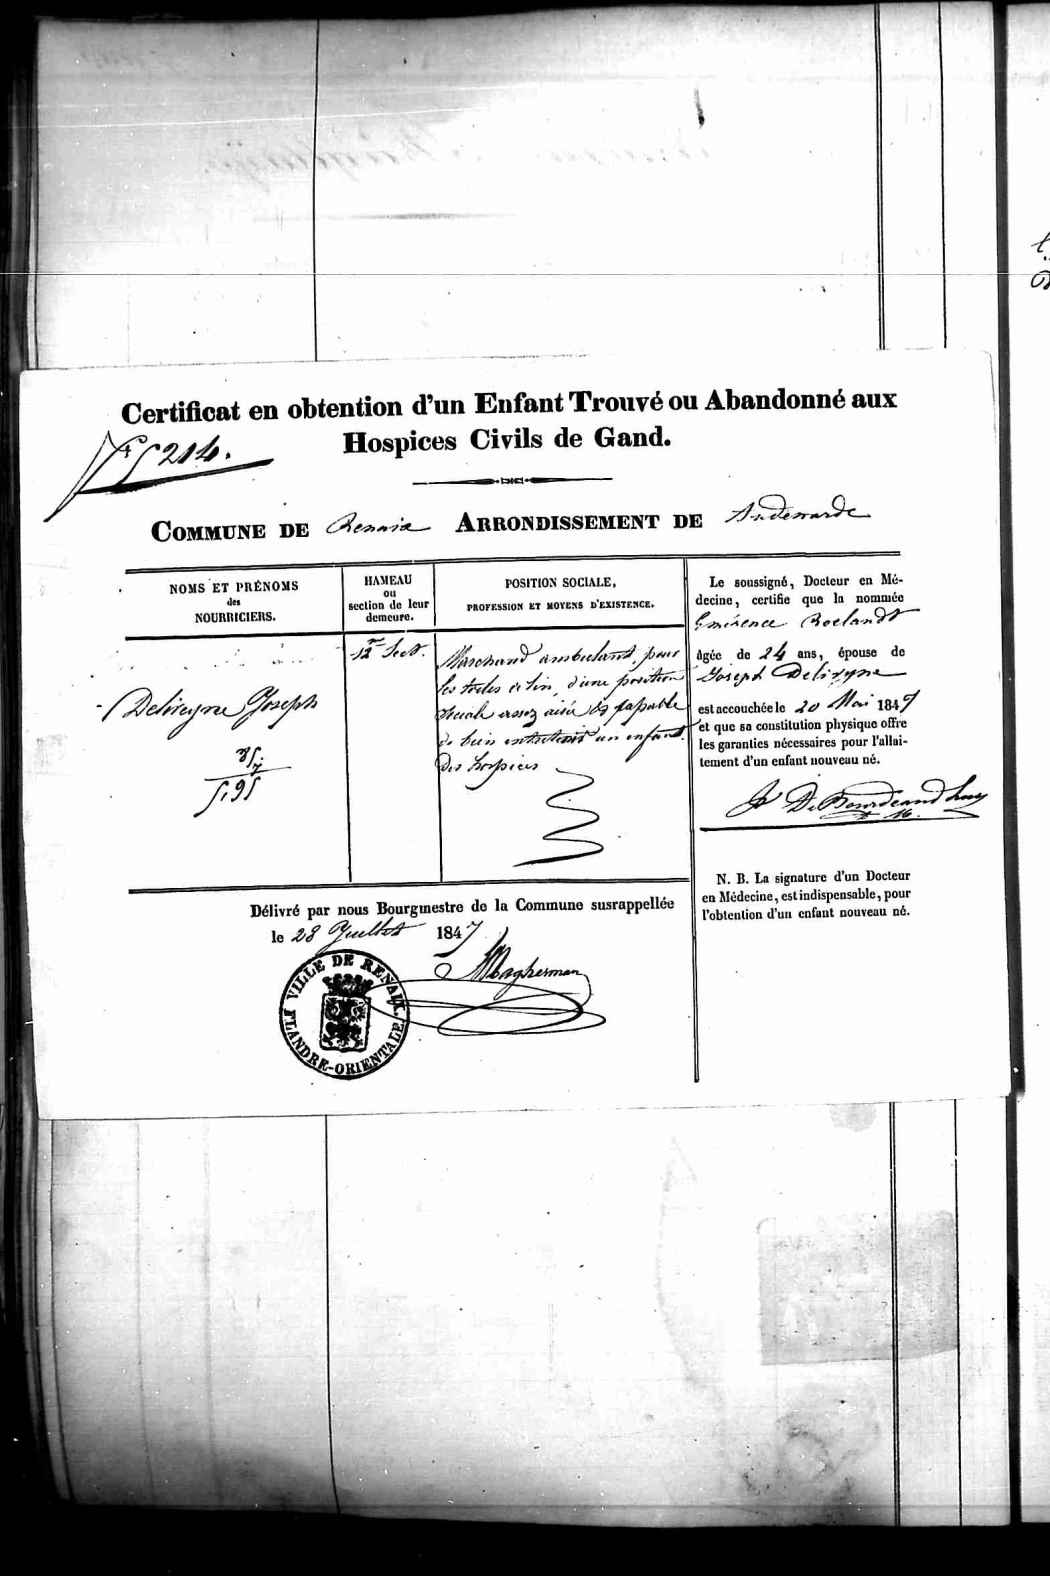 Certificat en obtention d'un Enfant Trouvé ou Abandonné aux
Hospices Civils de Gand.
214.
COMMUNE DE Renaix ARRONDISSEMENT DE Audenarde
NOMS ET PRÉNOMS
des
NOURRICIERS.
HAMEAU
ou
section de leur
demeure.
POSITION SOCIALE,
PROFESSION ET MOYENS D'EXISTENCE.
Delireyne Joseph
12e Sect.
Marchand ambulant, pour
les toiles de lin, d'une position
sociale assez aisée et capable
de bien entretenir un enfant
des hospices
Le soussigné, Docteur en Mé-
decine, certifie que la nommée
Emérence Roelandt
âgée de 24 ans, épouse de
Joseph Delireyne
est accouchée le 20 Mai 1847
et que sa constitution physique offre
les garanties nécessaires pour l'allai-
tement d'un enfant nouveau né.
N. B. La signature d'un Docteur
en Médecine, est indispensable, pour
l'obtention d'un enfant nouveau né.
Délivré par nous Bourgmestre de la Commune susrappellée
le 28 Juillet 1847
Magherman
VILLE DE RENAIX.
FLANDRE-ORIENTALE